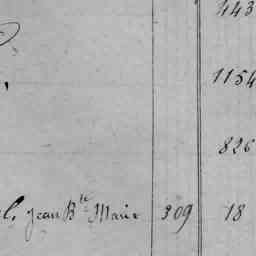 443
1154
826
Jean Bte Marie 309 18